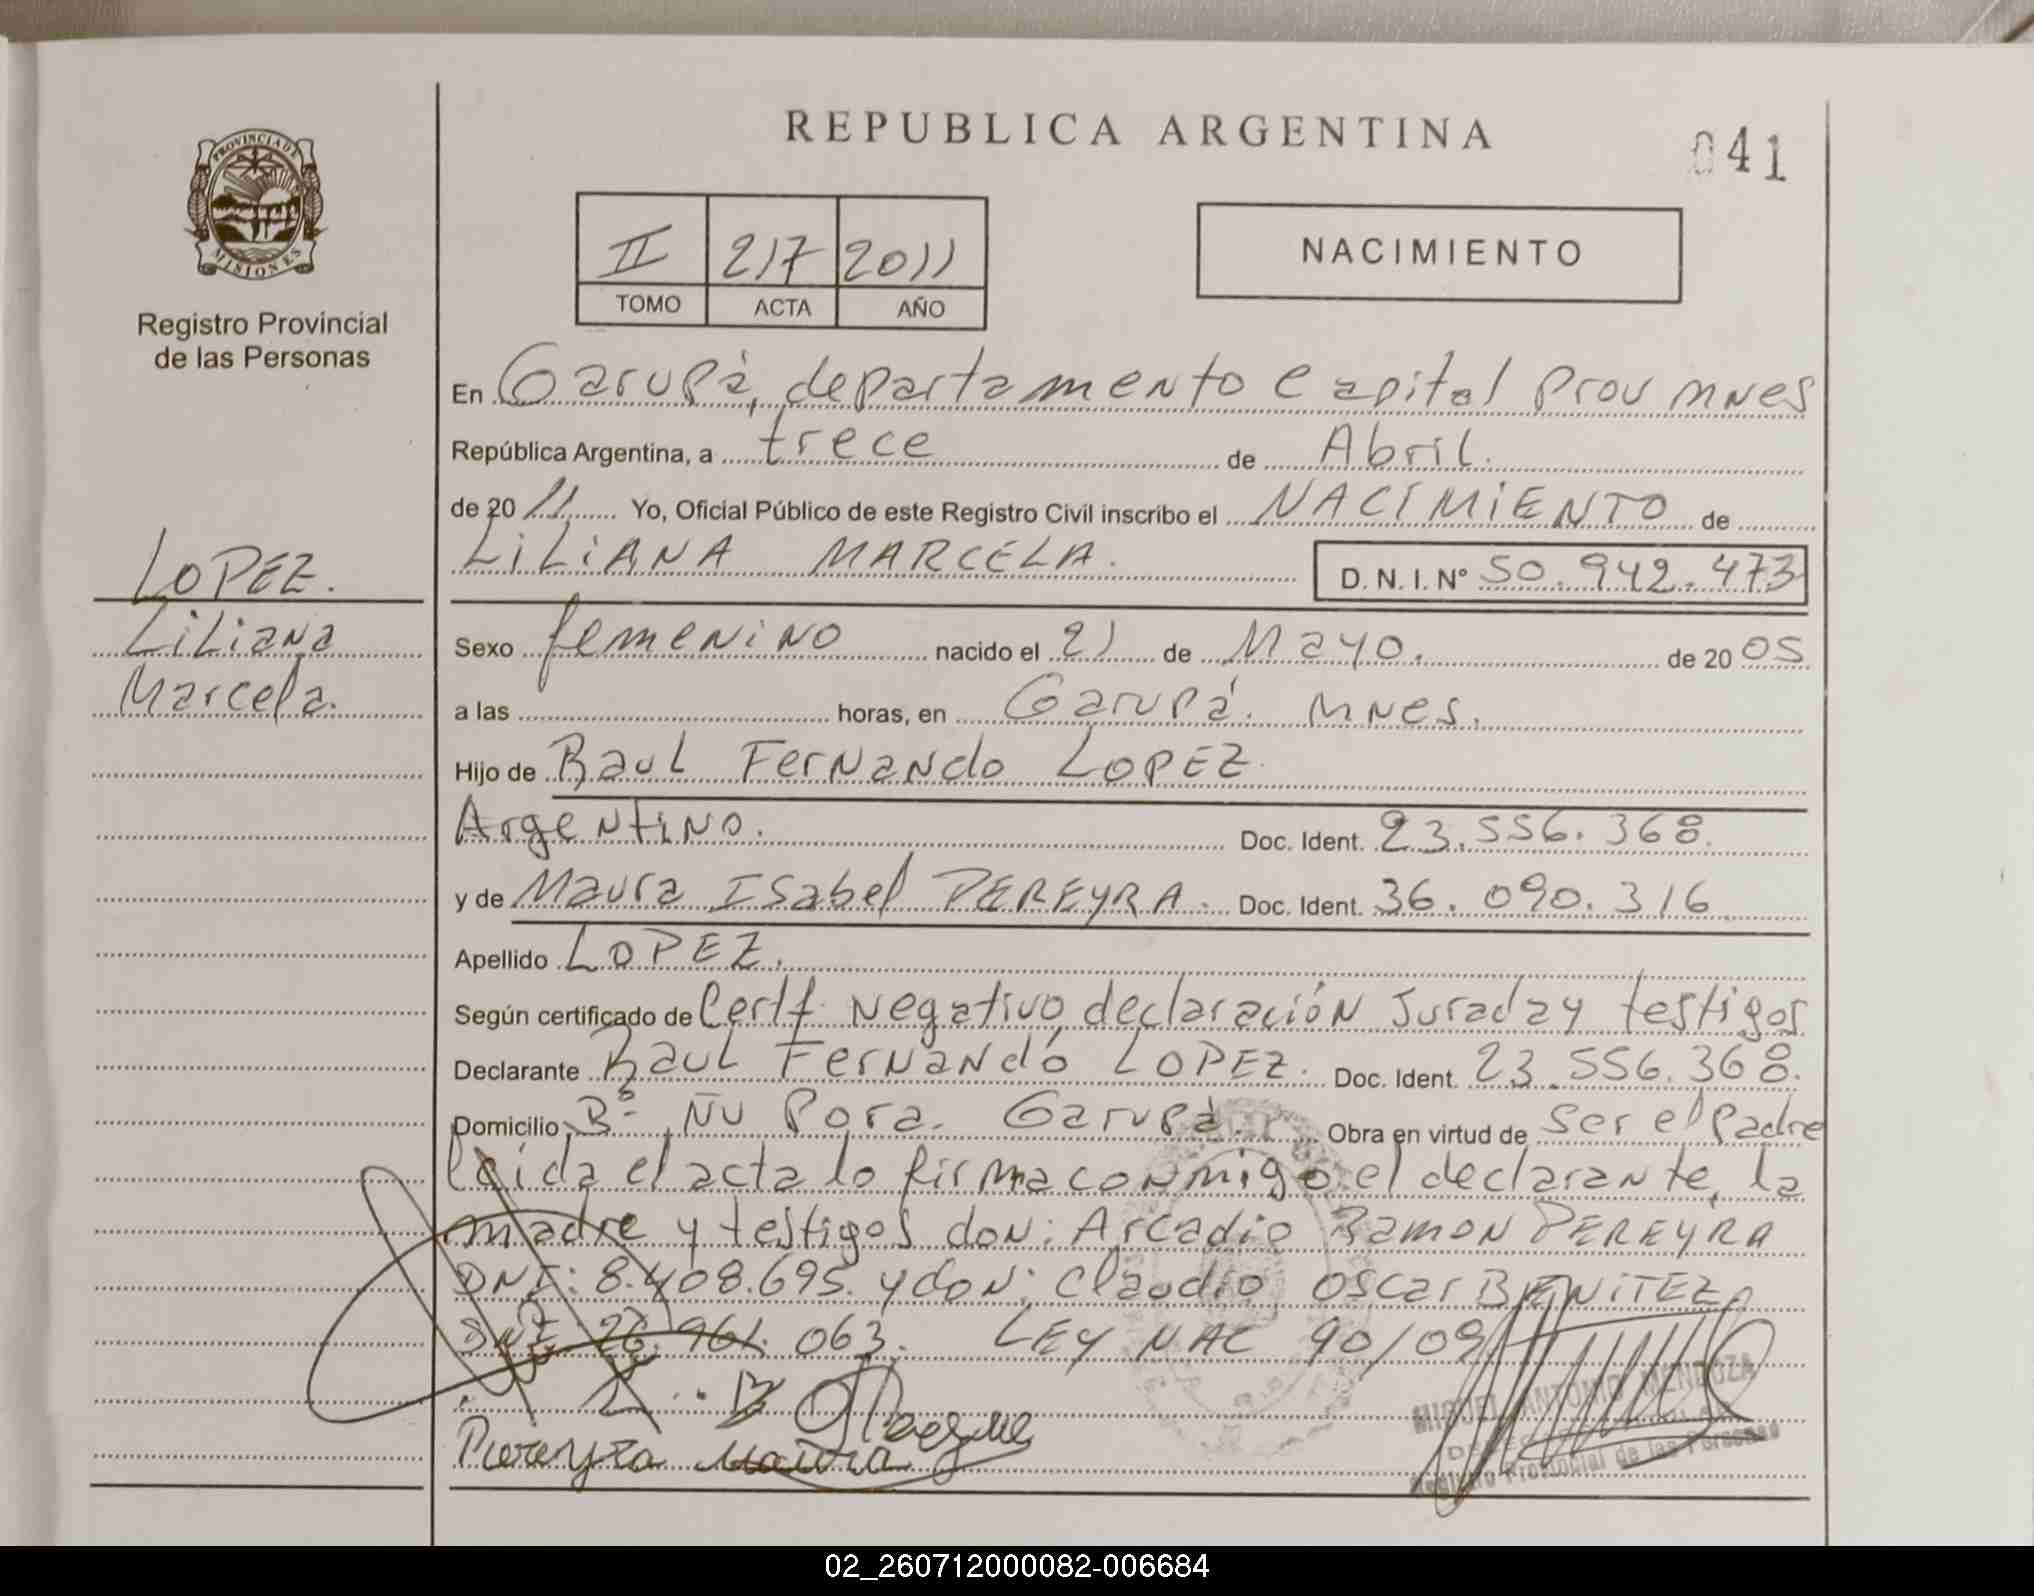 REPUBLICA ARGENTINA
041
PROVINCIA DE MISIONES
Registro Provincial
de las Personas
II 217 2011
TOMO ACTA AÑO
NACIMIENTO
En Garupá, departamento Capital Prov Mnes
República Argentina, a trece de Abril.
de 20 11 Yo, Oficial Público de este Registro Civil inscribo el NACIMIENTO de
LILIANA MARCELA. D. N. I. Nº 50.942.473
LOPEZ.
Liliana
Marcela.
Sexo femenino nacido el 21 de Mayo. de 20 05
a las horas, en Garupá. Mnes.
Hijo de Raul Fernando LOPEZ.
Argentino. Doc. Ident. 23.556.368.
y de Maura Isabel PEREYRA. Doc. Ident. 36.090.316
Apellido LOPEZ.
Según certificado de Certf. negativo, declaración Jurada y testigos
Declarante Raul Fernando LOPEZ. Doc. Ident. 23.556.368.
Domicilio Bº Ñu Pora. Garupá. Obra en virtud de ser el padre
leida el acta lo firma conmigo el declarante, la
madre y testigos don: Arcadio Ramon PEREYRA
DNI: 8.408.695. y don: Claudio Oscar BENITEZ
DNI 26.961.063. LEY NAC 90/09
Pereyra Maura
MIGUEL ANTONIO MENDOZA
Registro Provincial de las Personas
02_260712000082-006684